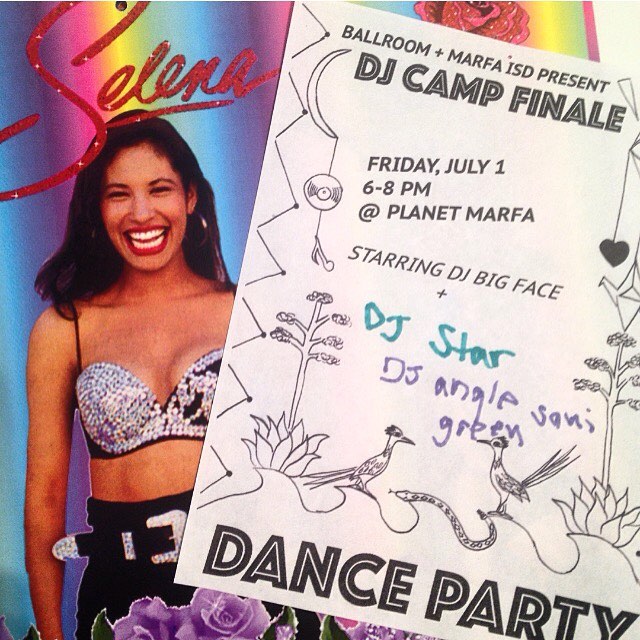 Selena
BALLROOM + MARFA ISD PRESENT
DJ CAMP FINALE
FRIDAY, JULY 1
6-8 PM
@ PLANET MARFA
STARRING DJ BIG FACE
+
DJ Star
DJ angle soni
green
DANCE PARTY